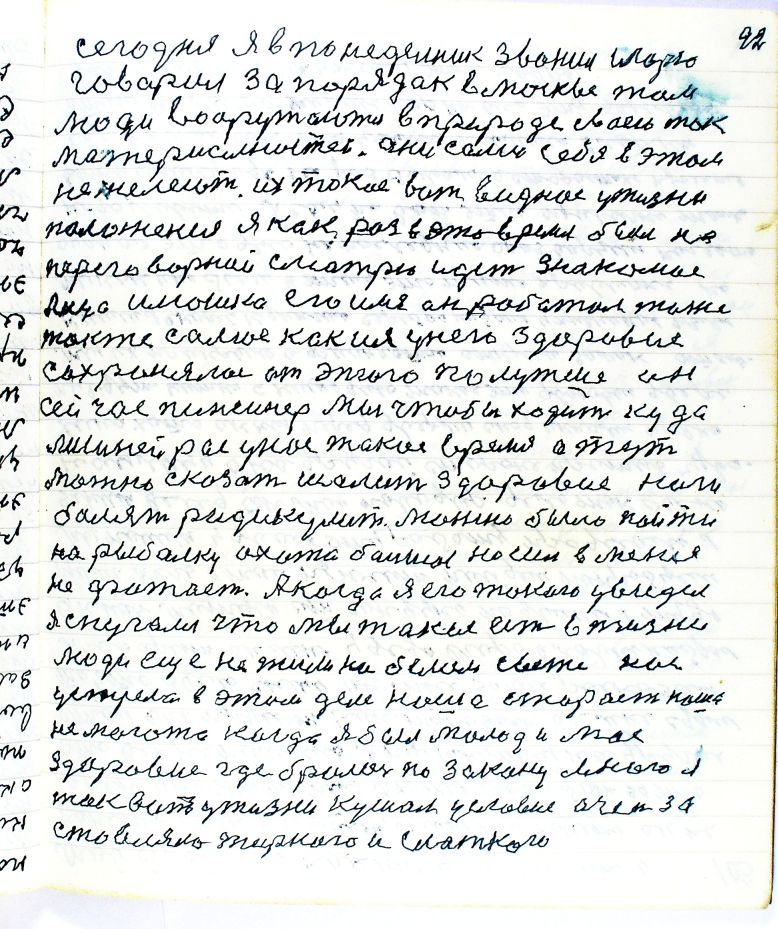 92
сегодня я в понеделник звонил
говарил за порядак в москве там
люди вооружаются в природе своей так
материсльностей. они сами себя в этом
нежелеют. их токое вот видное ужизни
положения я как раз в это время был на
переговорной сматрю идет знакомое
лицо имошка его имя ан работал тоже
также самое как и я унего здоровие
сохранялое от этого полутше ан
сейчас пинсинер мы чтобы ходит куда
уное такое время а тут
можно сказат шалит здоровие ноги
балят радикулит. можно было пойти
на рыбалку охота балшая но сил в меня
не фатает. А когда я его токого увидел
я спугалл что мы такие ест в жизни
люди еще не жили на белом свете нас
в этом деле наша старост наша
немагота когда я был молод и мое
здоровие где бралос по закону много я
так вот ужизни кушал условие очен за
ставляло жирного и слаткого